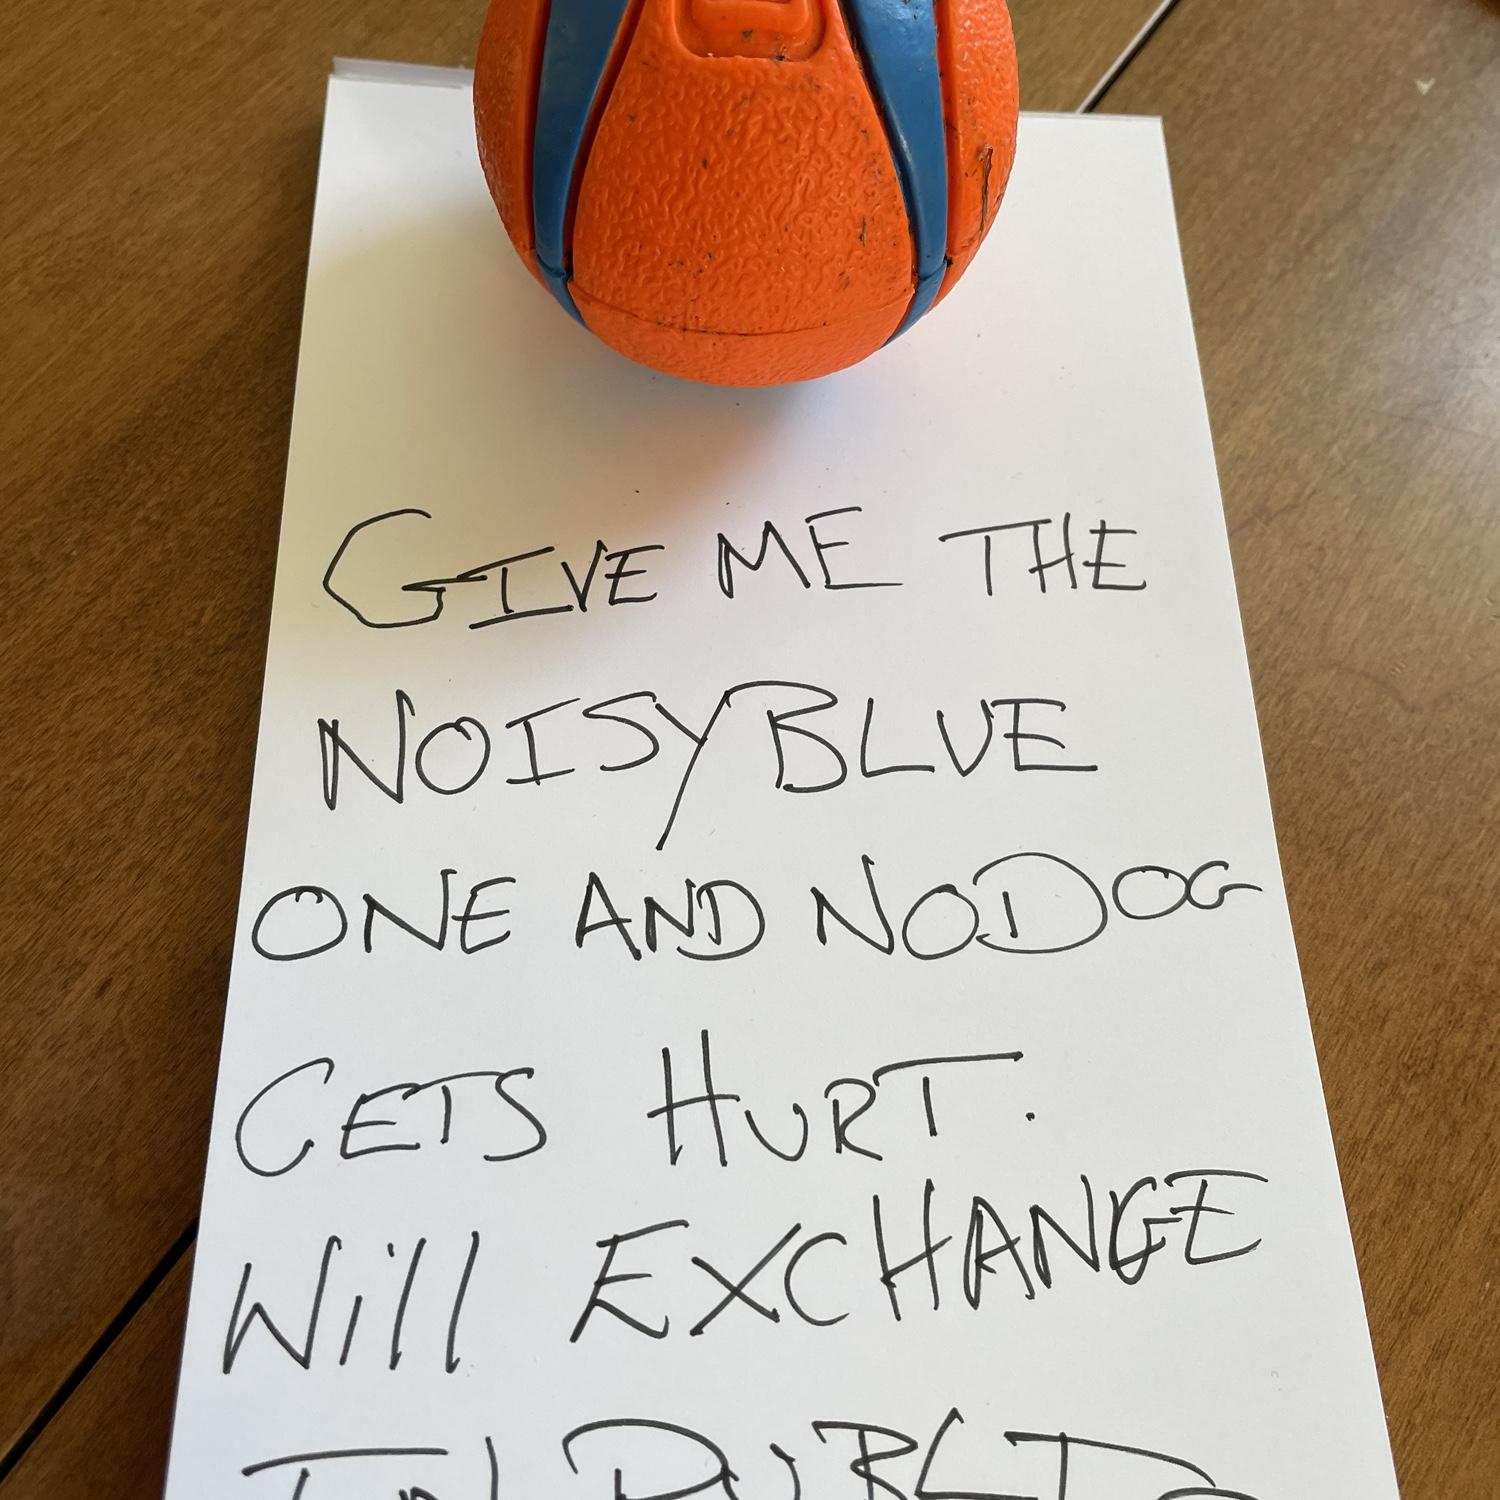 GIVE ME THE
NOISY BLUE
ONE AND NO DOG
GETS HURT.
Will EXCHANGE
IN PUBLIC